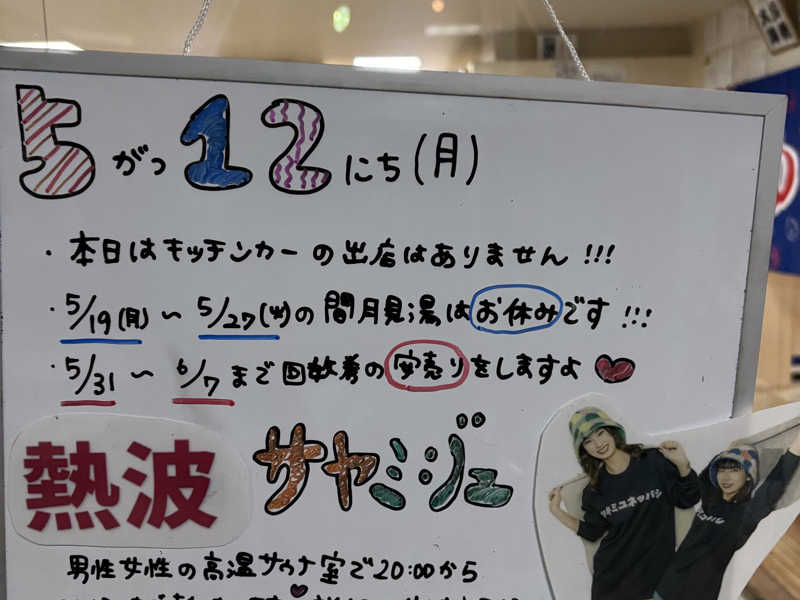 5がつ12にち(月)
・本日はキッチンカーの出店はありません!!!
・5/19(月)～5/27(火)の間月見湯はお休みです!!!
・5/31～6/7まで回数券の安売りをしますよ♥
熱波 サヤミジュ
男性女性の高温サウナ室で20:00から